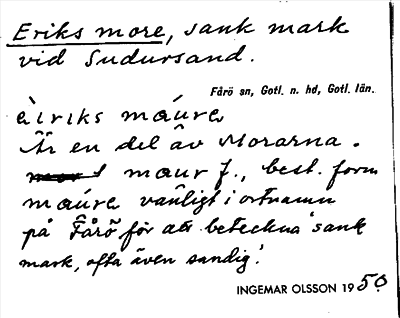 Eriks more, sank mark
vid Sudursand.
Fårö sn, Gotl. n. hd, Gotl. län.
èiriks máure
Är en del av Morarna.
maur f., best. form
máure vanligt i ortnamn
på Fårö för att beteckna 'sank
mark, ofta även sandig'.
INGEMAR OLSSON 1950